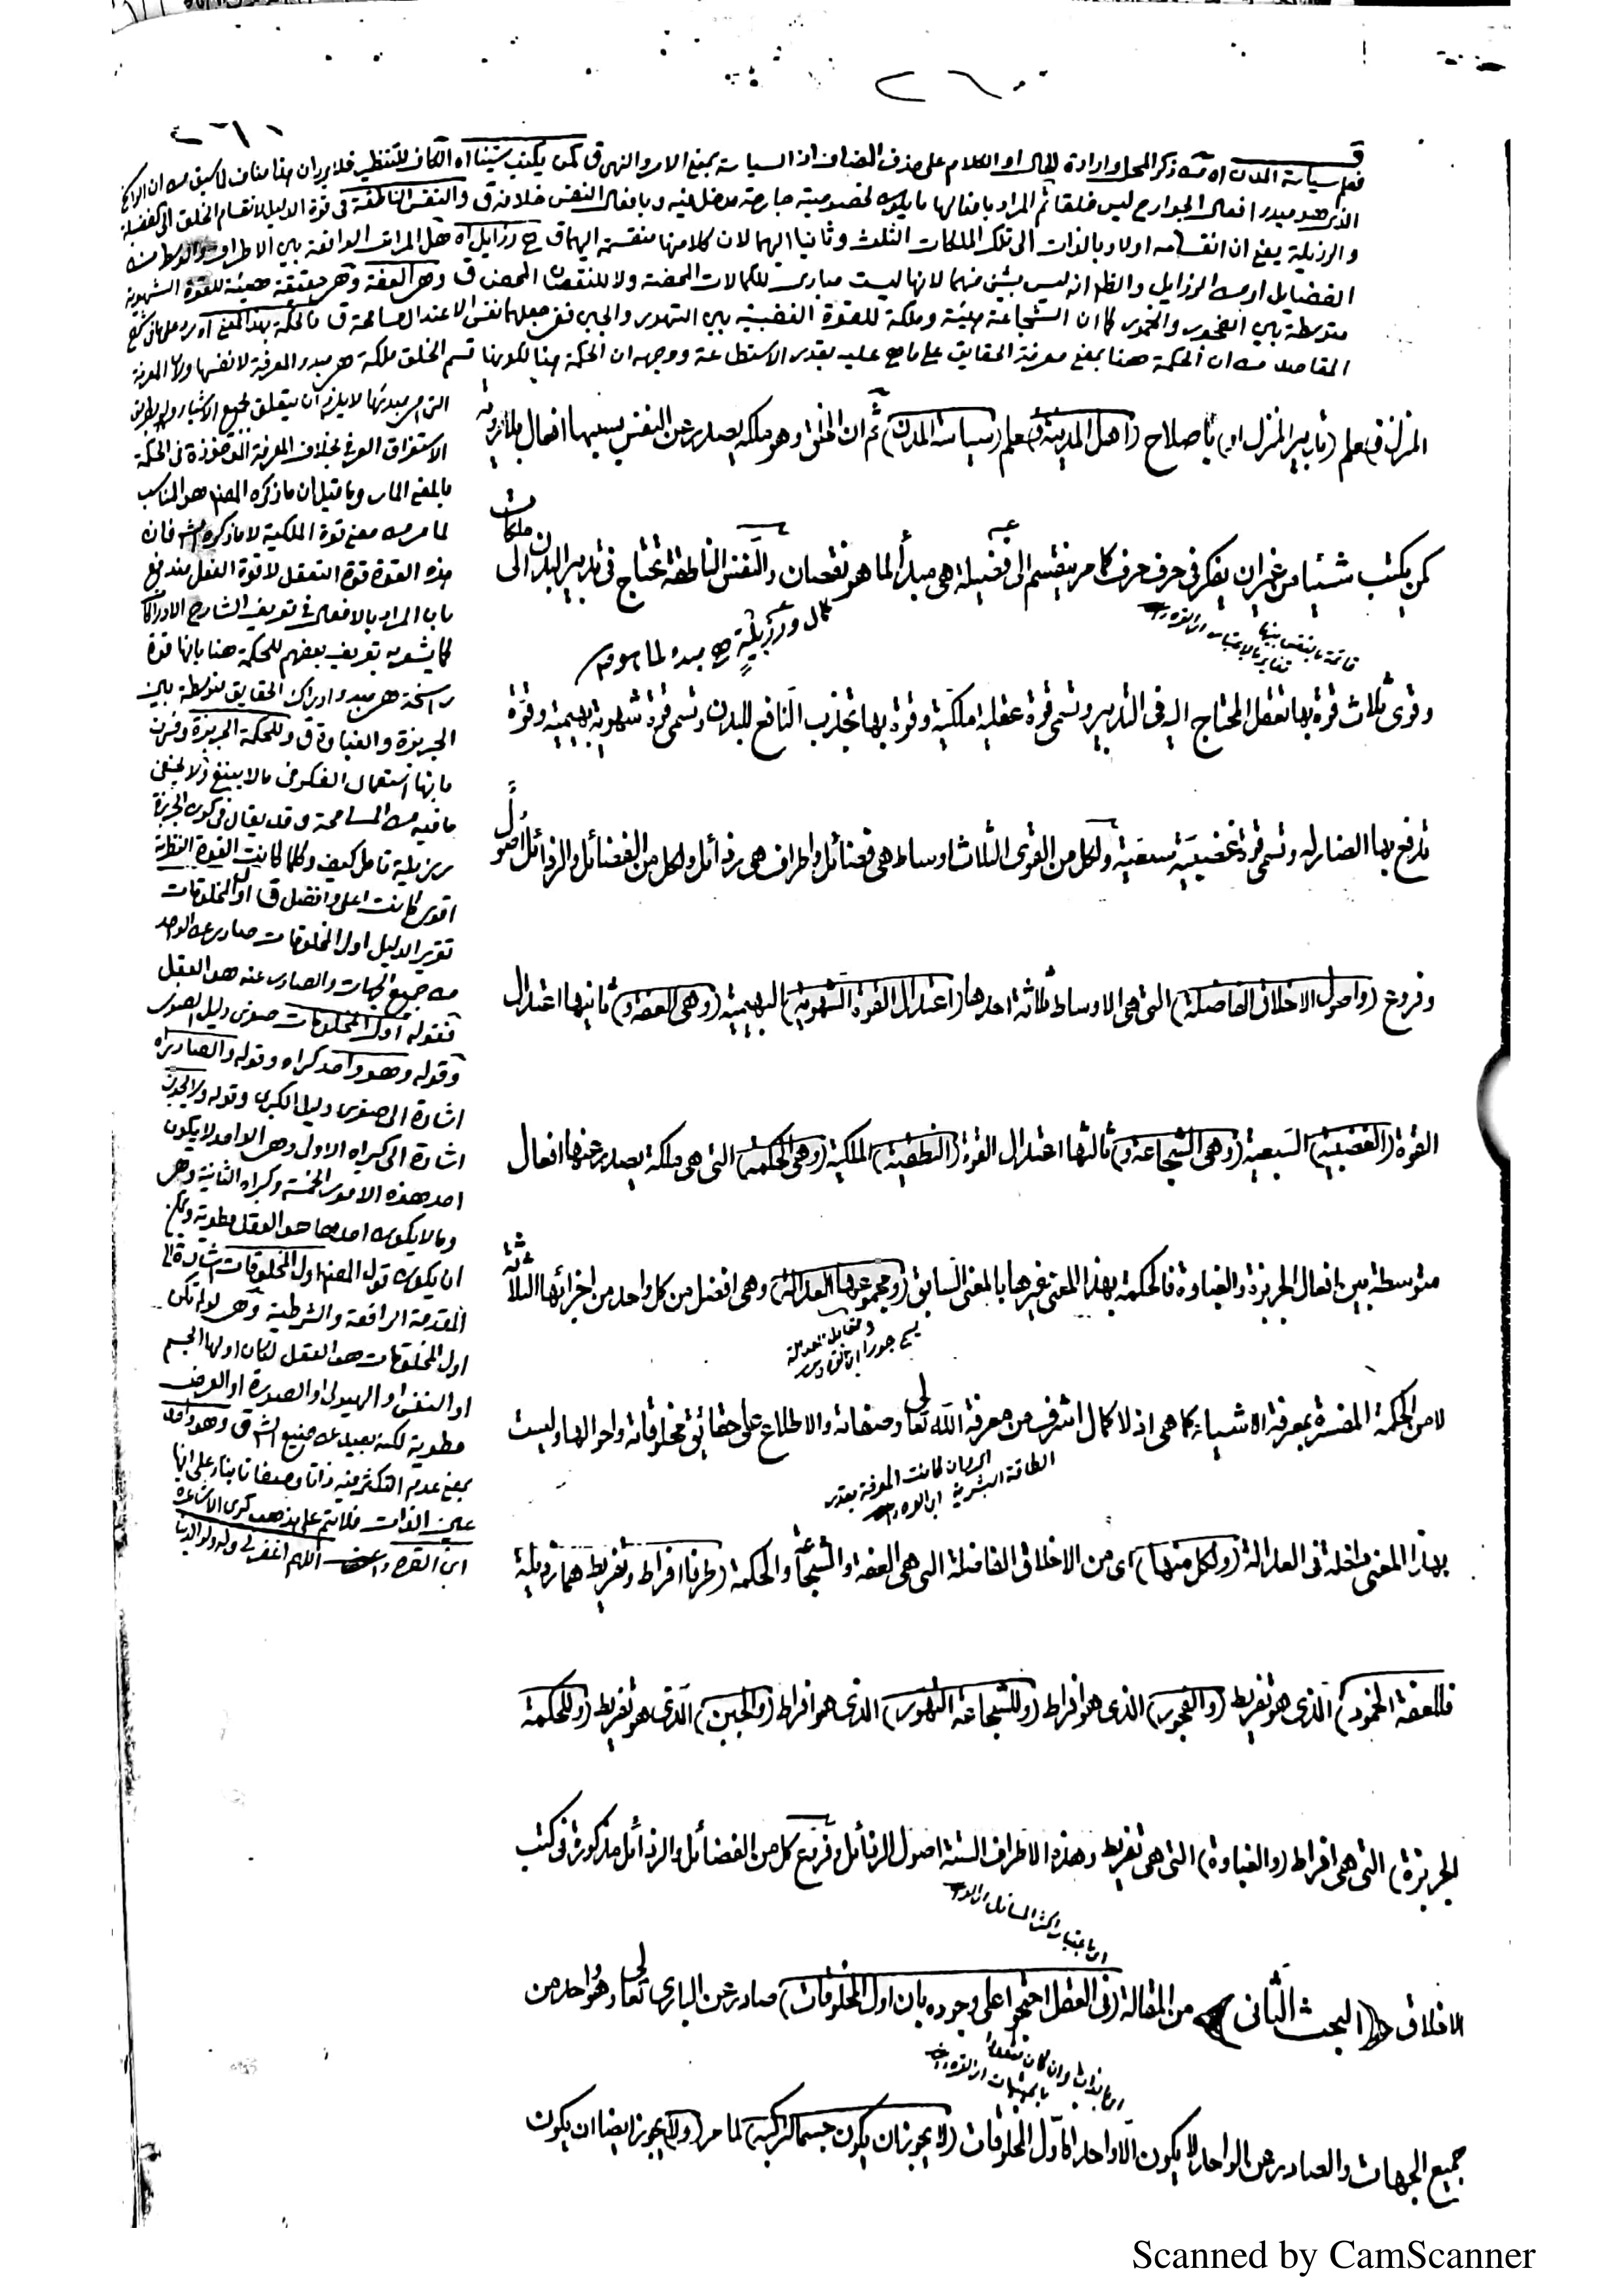 ٢٦٠
٢٦١
فعلم سياسة المدن اه ذكر المحل وارادة الحال او الكلام على حذف المضاف اذ السياسة بمعنى الامر والنهى ق كمن يكتب شيئا اه الكاف للتنظير فلا يرد ان هذا مناف لما سبق من ان
الذى هو مبدء افعال الجوارح ليس خلقا ثم المراد بافعالها ما يكون لخصوصية جارحة مدخل فيه وبافعال النفس خلافه ق والنفس الناطقة فى قوة الدليل لانقسام الخلق الى الفضيلة
والرذيلة يعنى ان انقسامه اولا وبالذات الى تلك الملكات الثلث وثانيا اليهما لان كلا منها منقسمة اليهما ق رذايل اه هل المراتب الواقعة بين الاطراف والوسط من
الفضايل او من الرذايل والظ انه ليس بشئ منهما لانها ليست مبادى للكمالات المحضة ولا للنقصان المحض ق وهى العفة وهى حقيقة هيئة للقوة الشهوية
متوسطة بين الفجور والخمود كما ان الشجاعة هيئة وملكة للقوة الغضبية بين التهور والجبن فجعلهما نفس الاعتدال مسامحة ق فالحكمة بهذا المعنى اه رد على ما فى شرح
المقاصد من ان الحكمة هنا بمعنى معرفة الحقايق على ما هى عليه بقدر الاستطاعة ووجهه ان الحكمة هنا لكونها قسم الخلق ملكة هى مبدء المعرفة لا نفسها ولان المعرفة
التى هى مبدئها لا يلزم ان يتعلق بجميع الاشياء ولو بطريق
الاستغراق العرفى بخلاف المعرفة المأخوذة فى الحكمة
بالمعنى المار وما قيل ان ما ذكره المصنف هو المناسب
لما مر من معنى قوة الملكية لا ما ذكره الش فان
هذه القوة قوة التعقل لا قوة الفعل مندفع
بان المراد بالافعال فى تعريف الشارح الادراكات
كما يشعر به تعريف بعضهم للحكمة هنا بانها قوة
راسخة هى مبدء ادراك الحقايق متوسطة بين
الجربزة والغباوة ق وللحكمة الجربزة وفسرت
بانها استعمال الفكر فى ما لا ينبغى ولا يخفى
ما فيه من المسامحة وقد يقال فى كون الجربزة
رذيلة تأمل كيف وكلما كانت القوة النظرية
اقوى كانت اعلى وافضل ق اول المخلوقات
تقرير الدليل اول المخلوقات صادر عن الواحد
من جميع الجهات والصادر عنه هو العقل
فقوله اول المخلوقات صغرى دليل الصغرى
وقوله وهو واحد كبراه وقوله والصادر اه
اشارة الى صغرى دليل الكبرى وقوله ولا يجوز
اشارة الى كبراه الاولى وهى الواحد لا يكون
احد هذه الامور الخمسة وكبراه الثانية وهى
وما لا يكون احدها هو العقل مطوية ويمكن
ان يكون قول المصنف اول المخلوقات اشارة الى
المقدمة الرافعة والشرطية وهى لو لم تكن
اول المخلوقات هو العقل لكان اولها الجسم
او النفس او الهيولى او الصورة او العرض
مطوية لكنه بعيد عن صنيع الش ق وهو واحد
بمعنى عدم التكثر فيه ذاتا وصفاتا بناء على انها
عين الذات فلا يتم على مذهب كبرى الاشاعرة
ابن القره داغى اللهم اغفر لى وله ولوالدينا
المنزل فى علم (تدبير المنزل او) باصلاح (اهل المدينة ف) علم (سياسة المدن) ثم ان الخلق وهو ملكة يصدر عن النفس بسببها افعال بلا روية
كمن يكتب شيئا من غير ان يفكر فى حرف حرف كما مر ينقسم الى فضيلة هى مبدأ لما هو نقصان والنفس الناطقة تحتاج فى تدبير البدن الى ملكات
كمال ورذيلة هى مبدء لما هو
وقوى ثلاث قوة بها تعقل المحتاج اليه فى التدبير وتسمى قوة عقلية ملكية وقوة بها تجذب النافع للبدن وتسمى قوة شهوية بهيمية وقوة
تدفع بها الضار له وتسمى قوة غضبية سبعية ولكل من القوى الثلاث اوساط هى فضائل واطراف هى رذائل ولكل من الفضائل والرذائل اصول
وفروع (واصول الاخلاق الفاضلة) التى هى الاوساط ثلاثة احدها (اعتدال القوة الشهوية) البهيمية (وهى العفة و) ثانيها اعتدال
القوة (الغضبية) السبعية (وهى الشجاعة و) ثالثها اعتدال القوة (النطقية) الملكية (وهى الحكمة) التى هى ملكة يصدر عنها افعال
متوسطة بين افعال الجربزة والغباوة فالحكمة بهذا المعنى غيرها بالمعنى السابق (ومجموعها العدالة) وهى افضل من كل واحد من اجزائها الثلاثة
ومقابل العدالة
يسمى جورا ابن القره داغى
لا من الحكمة المفسرة بمعرفة الاشياء كما هى اذ لا كمال اشرف من معرفة الله تعالى وصفاته والاطلاع على حقائق مخلوقاته واحوالها وليست
اى وان كانت المعرفة بقدر
الطاقة البشرية
بهذا المعنى داخلة فى العدالة (ولكل منها) اى من الاخلاق الفاضلة التى هى العفة والشجاعة والحكمة (طرفا افراط وتفريط هما رذيلة
فللعفة الخمود) الذى هو تفريط (والفجور) الذى هو افراط (وللشجاعة التهور) الذى هو افراط (والجبن) الذى هو تفريط (وللحكمة
الجربزة) التى هى افراط (والغباوة) التى هى تفريط وهذه الاطراف الستة اصول الرذائل وفروع كل من الفضائل والرذائل مذكورة فى كتب
الاخلاق (البحث الثانى) من المقالة (فى العقل احتجوا على وجوده بان اول المخلوقات) صادر عن البارى تعالى وهو واحد من
جميع الجهات والصادر عن الواحد لا يكون الا واحدا فاول المخلوقات (لا يجوز ان يكون جسما لتركبه) لما مر (و) لا يجوز ايضا ان يكون
Scanned by CamScanner